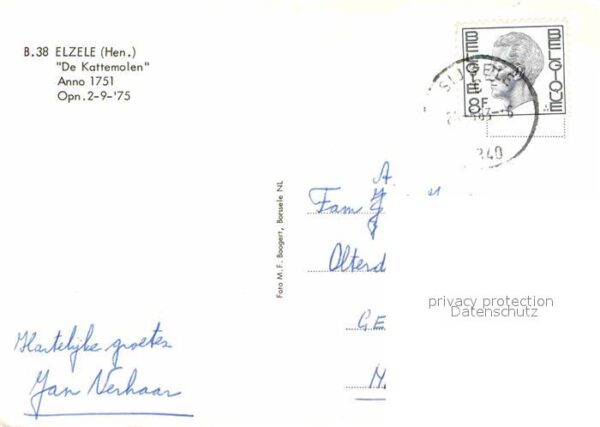 B.38 ELZELE (Hen.)
"De Kattemolen"
Anno 1751
Opn. 2-9-'75
BELGIE
8F
BELGIQUE
SIJSELE
Foto M.F. Boogert, Borssele NL
A.
Fam
Olterd
GE
privacy protection
Datenschutz
Hartelijke groeten
Jan Verhaar